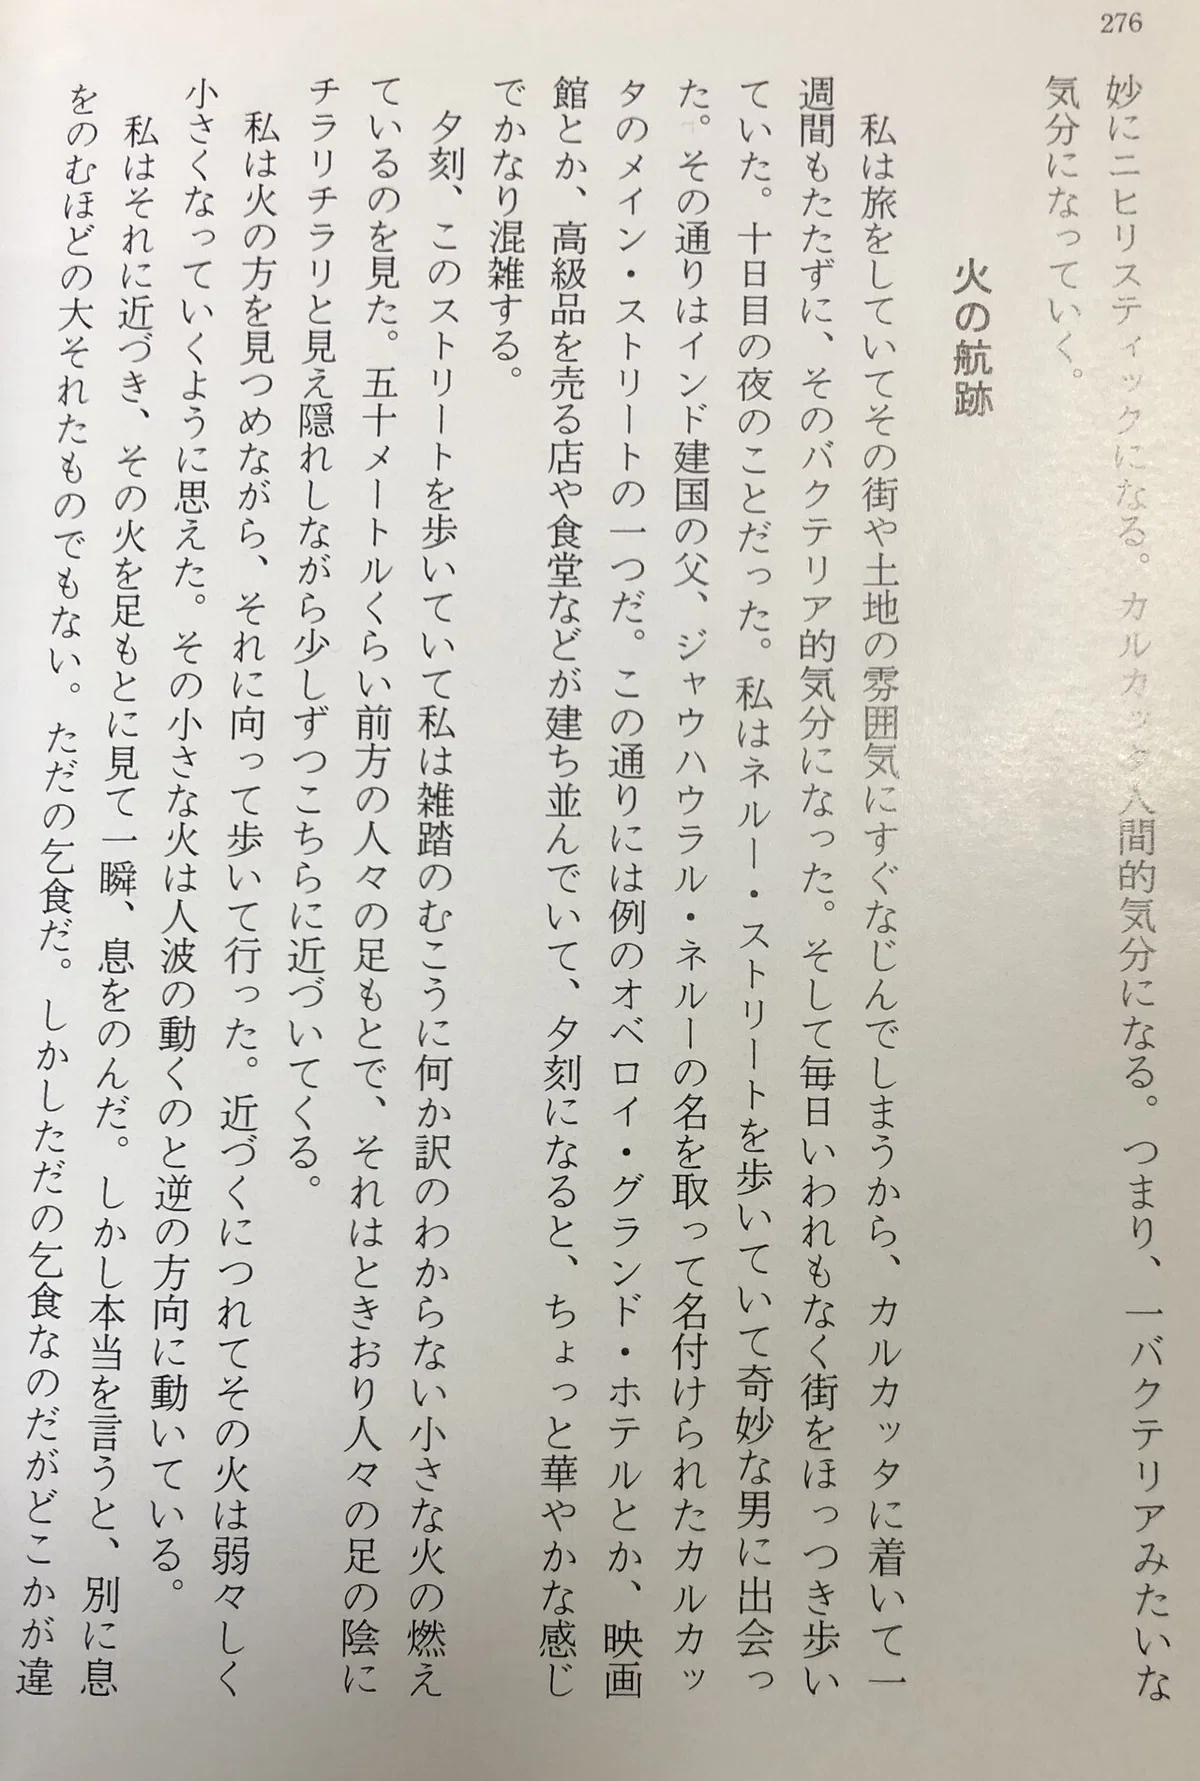 276
妙にニヒリスティックになる。カルカッタ人間的気分になる。つまり、一バクテリアみたいな
気分になっていく。
火の航跡
私は旅をしていてその街や土地の雰囲気にすぐなじんでしまうから、カルカッタに着いて一
週間もたたずに、そのバクテリア的気分になった。そして毎日いわれもなく街をほっつき歩い
ていた。十日目の夜のことだった。私はネルー・ストリートを歩いていて奇妙な男に出会っ
た。その通りはインド建国の父、ジャウハウラル・ネルーの名を取って名付けられたカルカッ
タのメイン・ストリートの一つだ。この通りには例のオベロイ・グランド・ホテルとか、映画
館とか、高級品を売る店や食堂などが建ち並んでいて、夕刻になると、ちょっと華やかな感じ
でかなり混雑する。
夕刻、このストリートを歩いていて私は雑踏のむこうに何か訳のわからない小さな火の燃え
ているのを見た。五十メートルくらい前方の人々の足もとで、それはときおり人々の足の陰に
チラリチラリと見え隠れしながら少しずつこちらに近づいてくる。
私は火の方を見つめながら、それに向って歩いて行った。近づくにつれてその火は弱々しく
小さくなっていくように思えた。その小さな火は人波の動くのと逆の方向に動いている。
私はそれに近づき、その火を足もとに見て一瞬、息をのんだ。しかし本当を言うと、別に息
をのむほどの大それたものでもない。ただの乞食だ。しかしただの乞食なのだがどこかが違